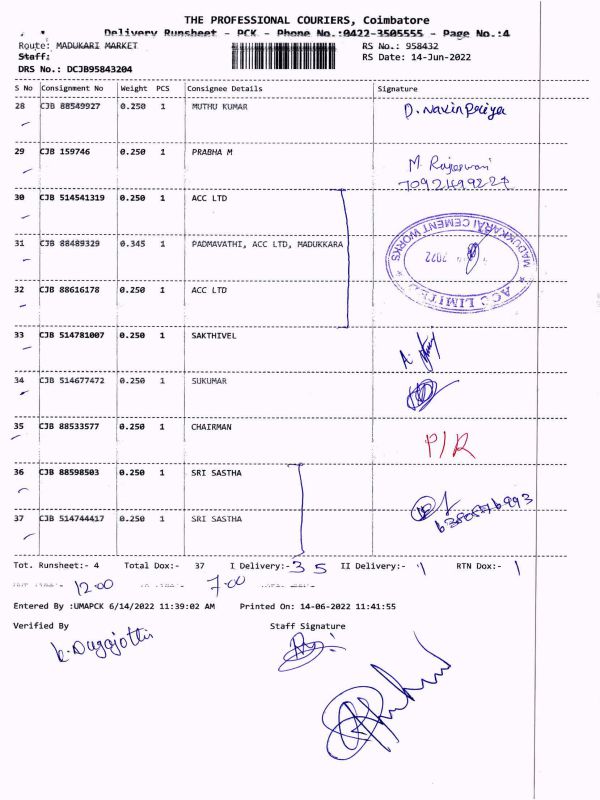 THE PROFESSIONAL COURIERS, Coimbatore
Delivery Runsheet - PCK - Phone No.:0422-3505555 - Page No.:4
Route: MADUKARI MARKET RS No.: 958432
Staff: RS Date: 14-Jun-2022
DRS No.: DCJB95843204
S No Consignment No Weight PCS Consignee Details Signature
28 CJB 88549927 0.250 1 MUTHU KUMAR D. Navin Peliya
29 CJB 159746 0.250 1 PRABHA M M. Rajeswari
30 CJB 514541319 0.250 1 ACC LTD
31 CJB 88489329 0.345 1 PADMAVATHI, ACC LTD, MADUKKARA
MADUKKARAI CEMENT WORKS
2022
ACC LIMITED
32 CJB 88616178 0.250 1 ACC LTD
33 CJB 514781007 0.250 1 SAKTHIVEL
34 CJB 514677472 0.250 1 SUKUMAR
35 CJB 88533577 0.250 1 CHAIRMAN P/R
36 CJB 88598503 0.250 1 SRI SASTHA
37 CJB 514744417 0.250 1 SRI SASTHA
Tot. Runsheet:- 4 Total Dox:- 37 I Delivery:- 35 II Delivery:- 1 RTN Dox:- 1
12:00 7:00
Entered By :UMAPCK 6/14/2022 11:39:02 AM Printed On: 14-06-2022 11:41:55
Verified By Staff Signature